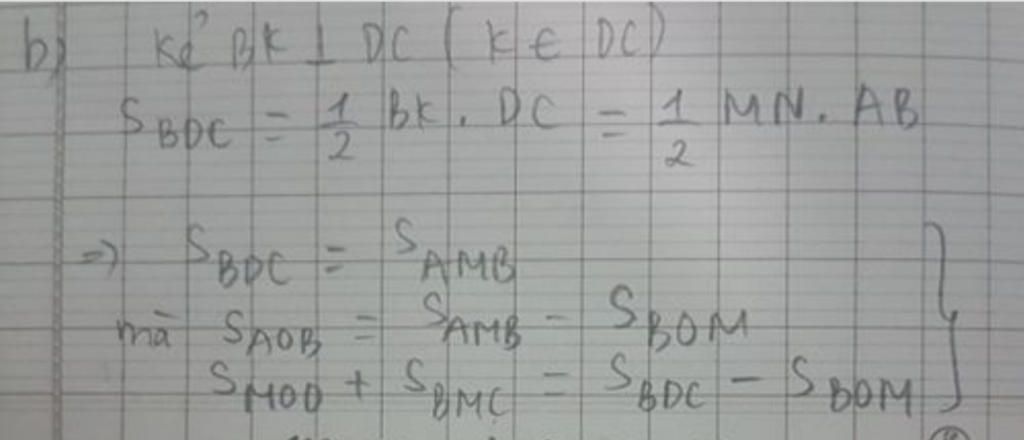 b) Kẻ BK ⊥ DC ( K ∈ DC)
S_BDC = 1/2 BK . DC = 1/2 MN. AB
=> S_BDC = S_AMB
mà S_AOB = S_AMB - S_BOM
S_MOD + S_BMC = S_BDC - S_BOM